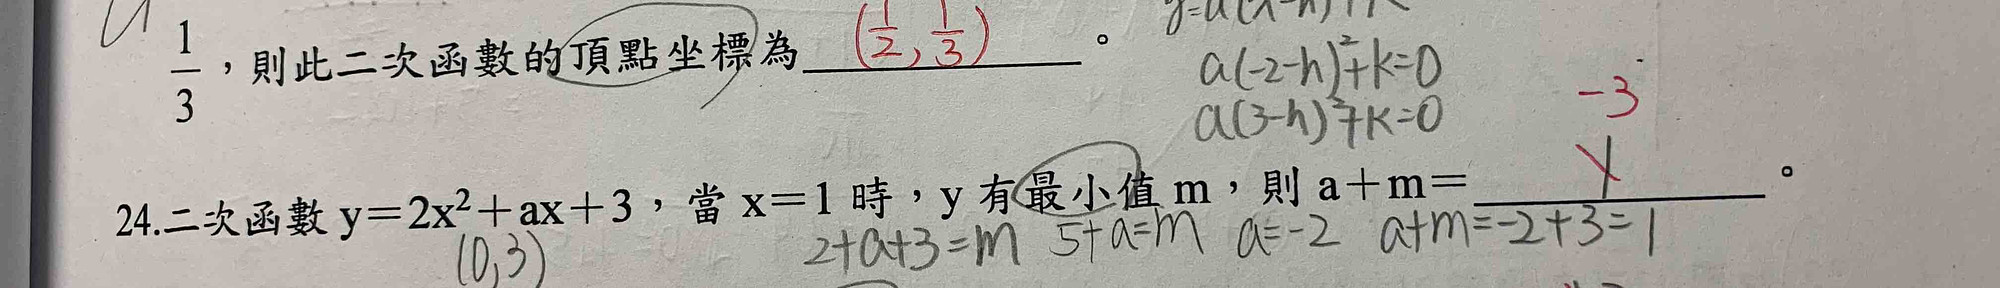 1/3，則此二次函數的頂點坐標為 (1/2, 1/3) 。
a(-2-h)²+k=0
a(3-h)²+k=0
-3
24.二次函數 y=2x²+ax+3，當 x=1 時，y 有最小值 m，則 a+m= 1 。
(0,3) 2+a+3=m 5+a=m a=-2 a+m=-2+3=1